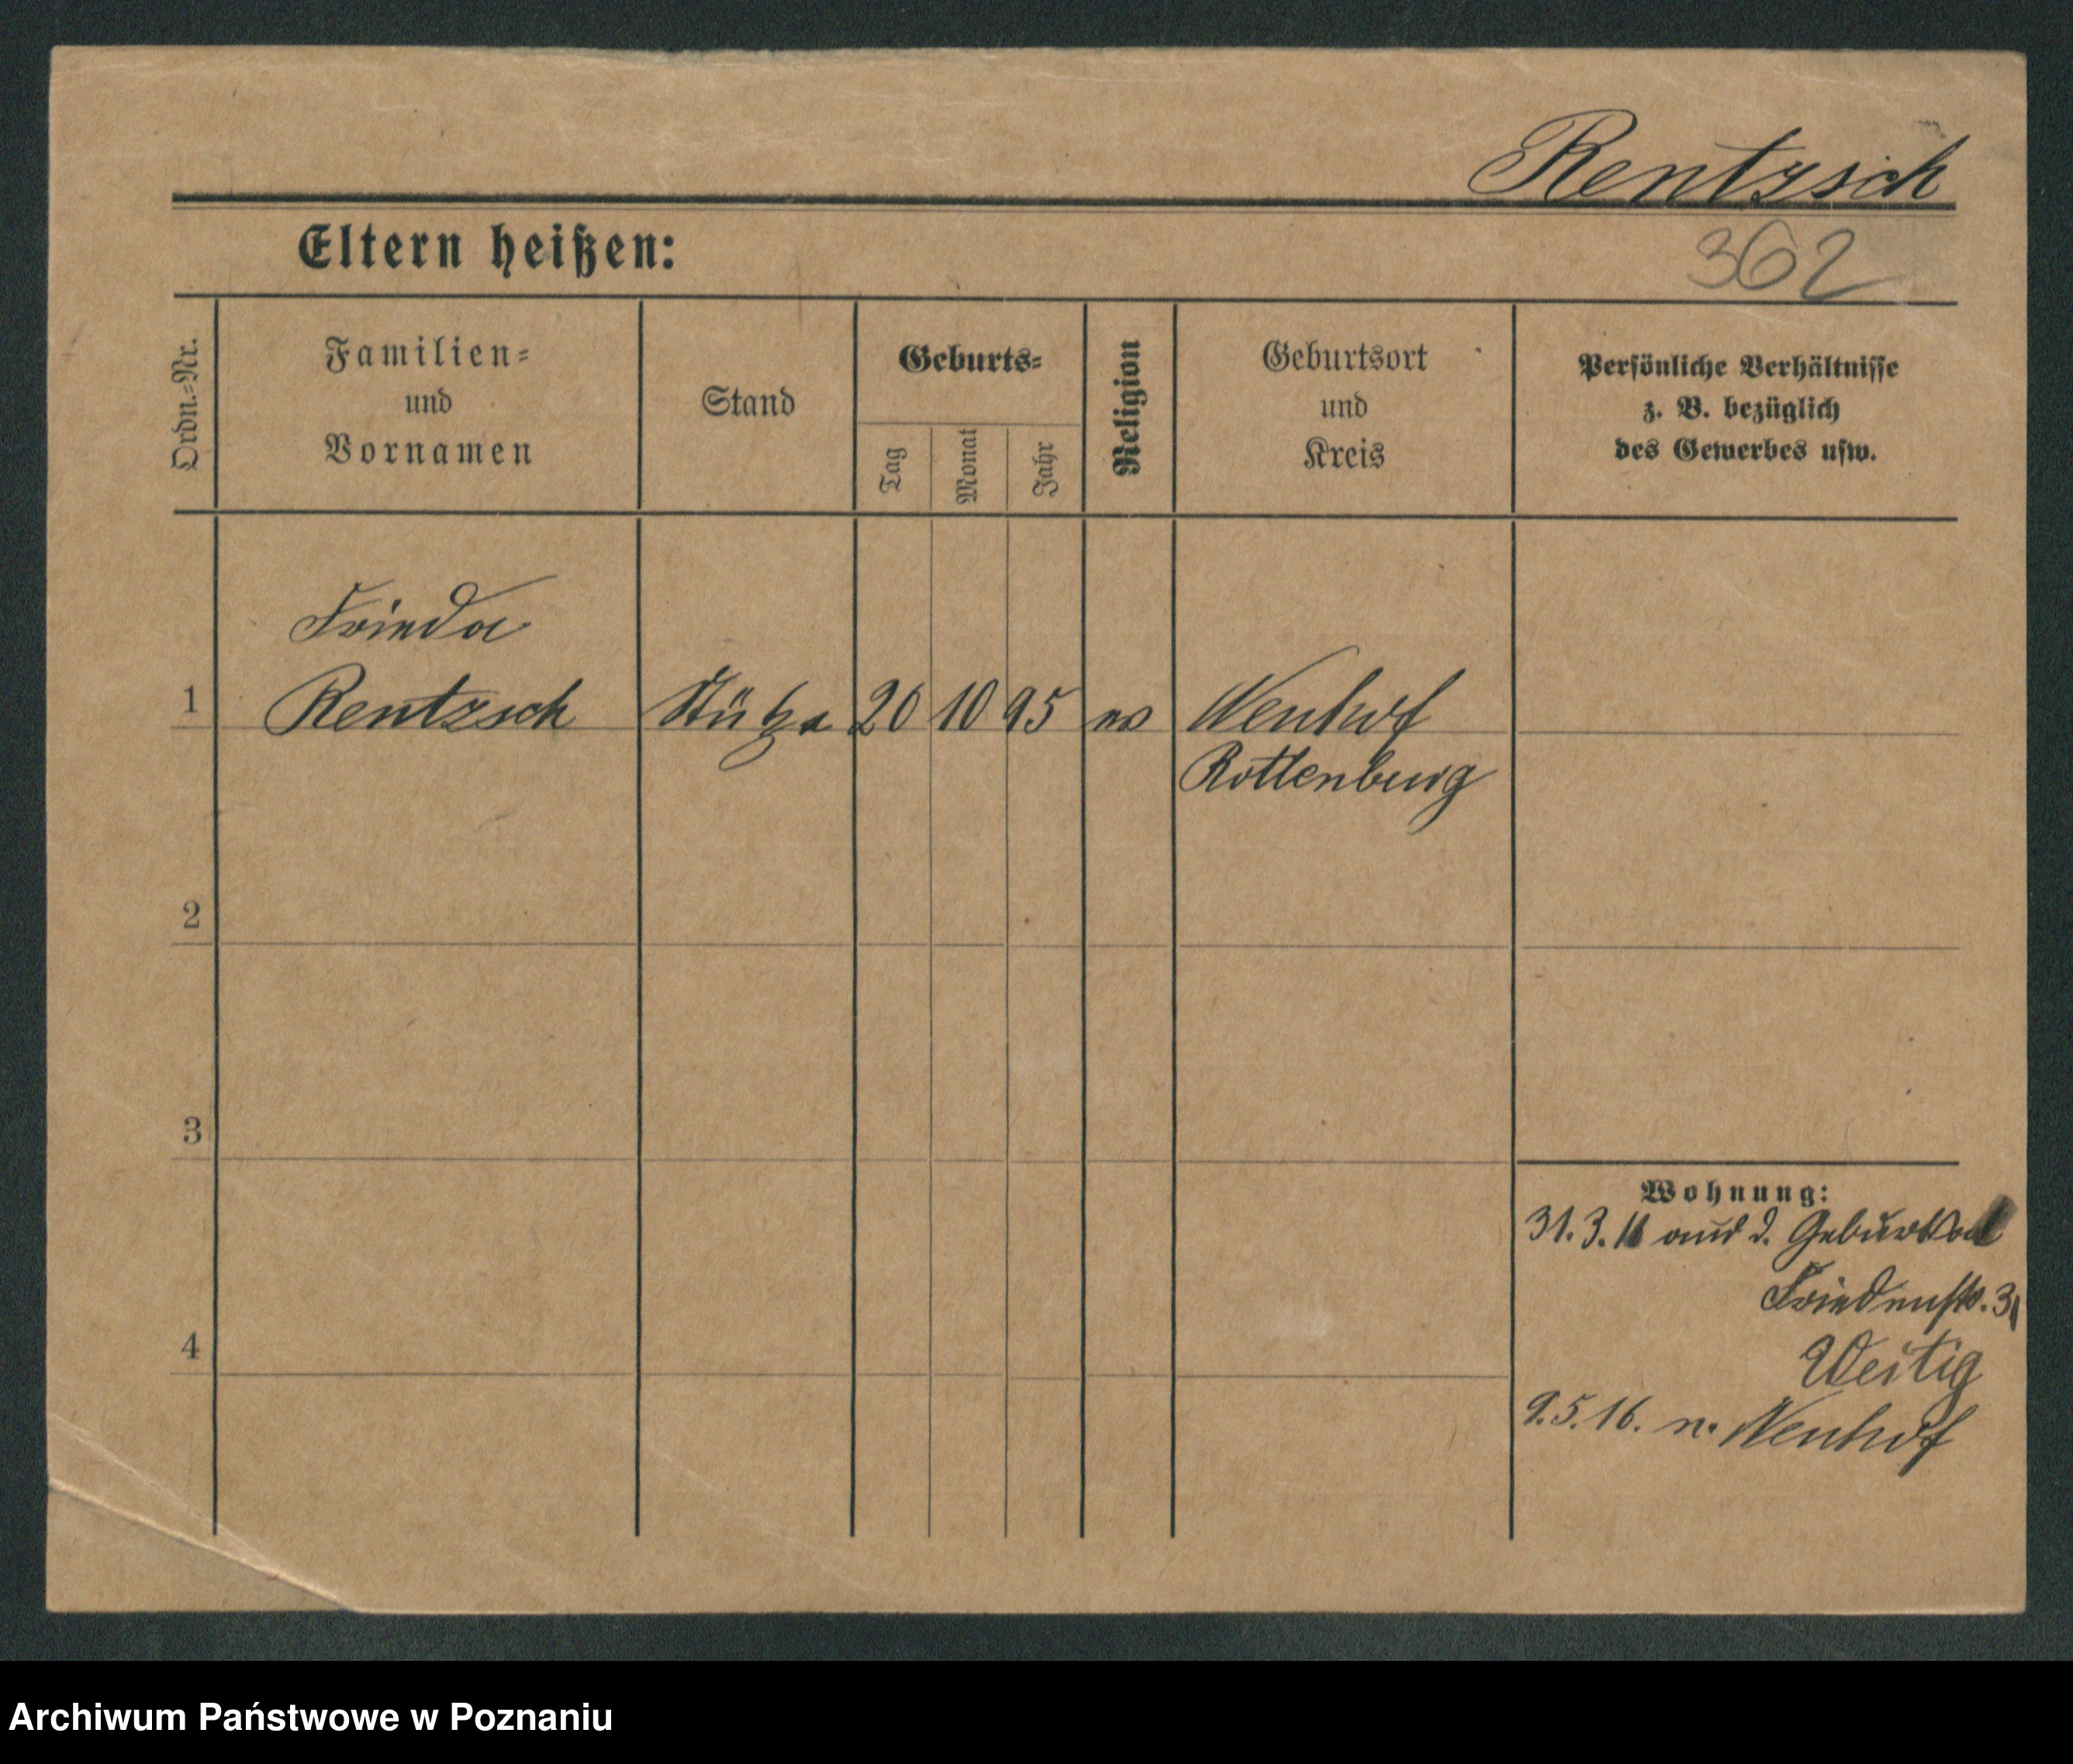 Rentzsch
Eltern heißen:
362
Ordn.=Nr.
Familien=
und
Vornamen
Stand
Geburts=
Tag
Monat
Jahr
Religion
Geburtsort
und
Kreis
Persönliche Verhältnisse
z. B. bezüglich
des Gewerbes usw.
Frieda
1 Rentzsch Stütze 20 10 95 ev Neuhof
Rottenburg
2
3
Wohnung:
31.3.16 aus d. Geburtsort
Friedenstr. 31
4
Weitig
9.5.16. n. Neuhof
Archiwum Państwowe w Poznaniu